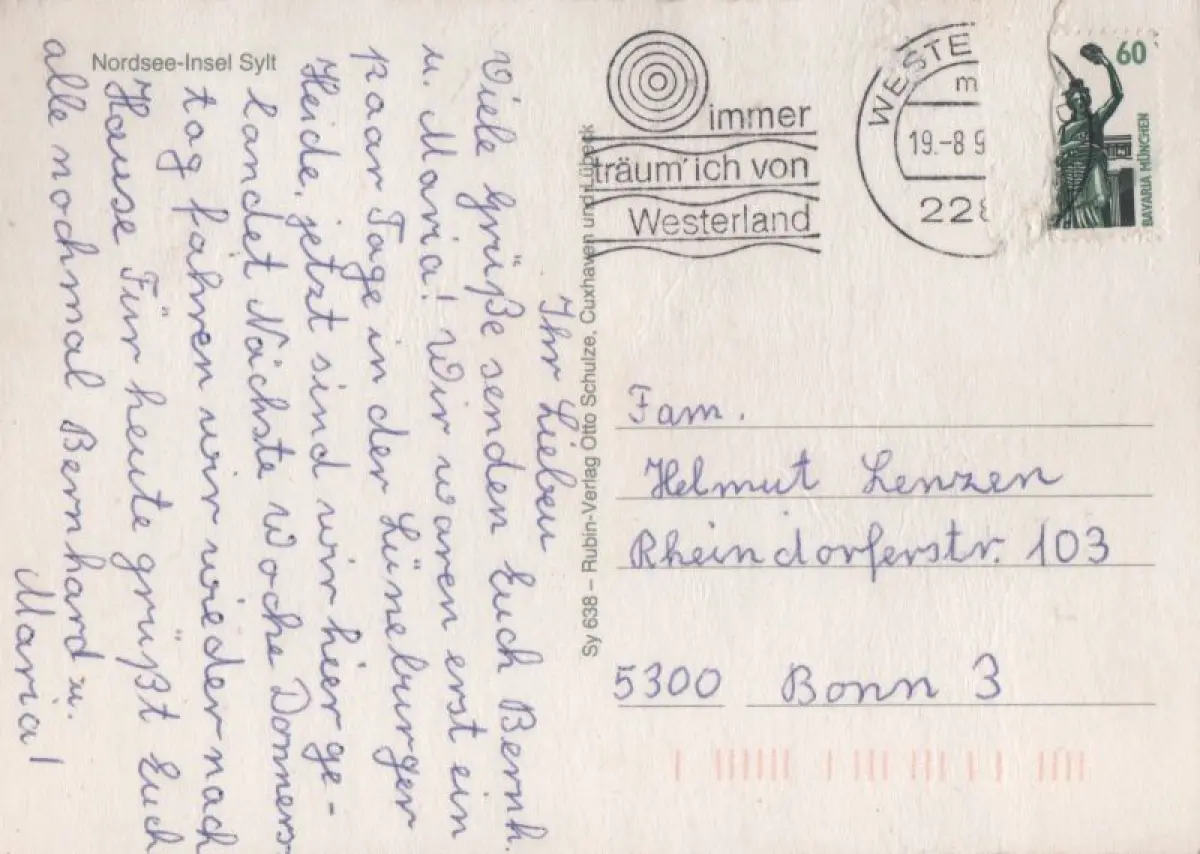 Nordsee-Insel Sylt
Ihr Lieben
Viele Grüße senden Euch Bernh.
u. Maria! Wir waren erst ein
paar Tage in der Lüneburger
Heide, jetzt sind wir hier ge-
landet Nächste Woche Donners-
tag fahren wir wieder nach
Hause Für heute grüßt Euch
alle nochmal Bernhard u.
Maria!
Sy 638 – Rubin-Verlag Otto Schulze, Cuxhaven und Lübeck
immer
träum' ich von
Westerland
WESTE
m
19.-8 9
228
60
BAVARIA MÜNCHEN
Fam.
Helmut Lenzen
Rheindorferstr. 103
5300 Bonn 3